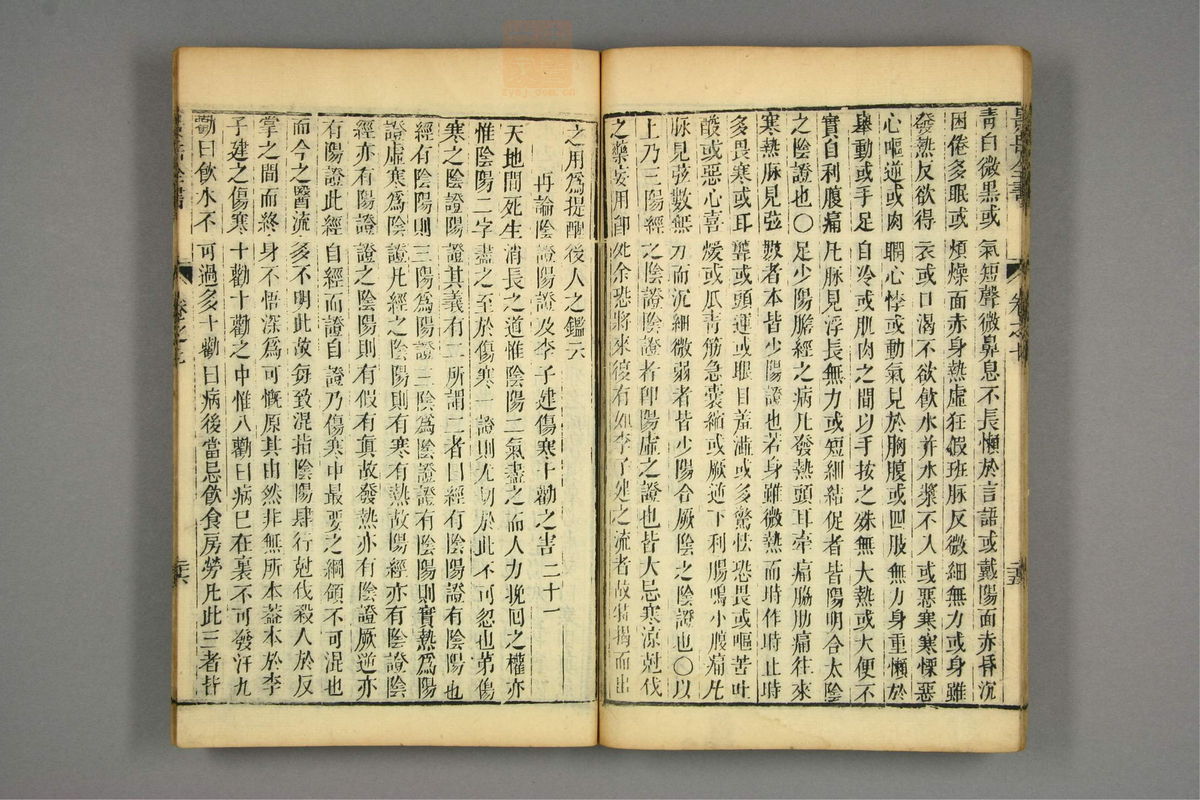 青白微黑或氣短聲微鼻息不長懶於言語或戴陽面赤昏沉
困倦多眠或煩燥面赤身熱虛狂假斑脉反微細無力或身雖
發熱反欲得衣或口渴不欲飲水并水漿不入或惡寒寒慄惡
心嘔逆或肉瞤心悸或動氣見於胸腹或四肢無力身重懶於
舉動或手足自冷或肌肉之間以手按之殊無大熱或大便不
實自利腹痛凡脉見浮長無力或短細結促者皆陽明合太陰
之陰證也〇足少陽膽經之病凡發熱頭耳牽痛脇肋痛往來
寒熱脉見弦數者本皆少陽證也若身雖微熱而時作時止時
多畏寒或耳聾或頭運或眼目羞澁或多驚怯恐畏或嘔苦吐
酸或惡心喜煖或爪青筋急囊縮或厥逆下利腸鳴小腹痛凡
脉見弦數無力而沉細微弱者皆少陽合厥陰之陰證也〇以
上乃三陽經之陰證陰證者即陽虛之證也皆大忌寒涼尅伐
之藥妄用即死余恐將來復有如李子建之流者故特揭而出
之用爲提醒後人之鑑六
再論陰證陽證及李子建傷寒十勸之害二十一
天地間死生消長之道惟陰陽二氣盡之而人力挽回之權亦
惟陰陽二字盡之至於傷寒一證則尤切於此不可忽也第傷
寒之陰證陽證其義有二所謂二者曰經有陰陽證有陰陽也
經有陰陽則三陽爲陽證三陰爲陰證證有陰陽則實熱爲陽
證虛寒爲陰證凡經之陰陽則有寒有熱故陽經亦有陰證陰
經亦有陽證證之陰陽則有假有眞故發熱亦有陰證厥逆亦
有陽證此經自經而證自證乃傷寒中最要之綱領不可混也
而今之醫流多不明此故每致混指陰陽肆行尅伐殺人於反
掌之間而終身不悟深爲可慨原其由然非無所本葢本於李
子建之傷寒十勸十勸之中惟八勸曰病巳在裏不可發汗九
勸曰飲水不可過多十勸曰病後當忌飲食房勞凡此三者皆
景岳全書
卷之七
二十五
二十六